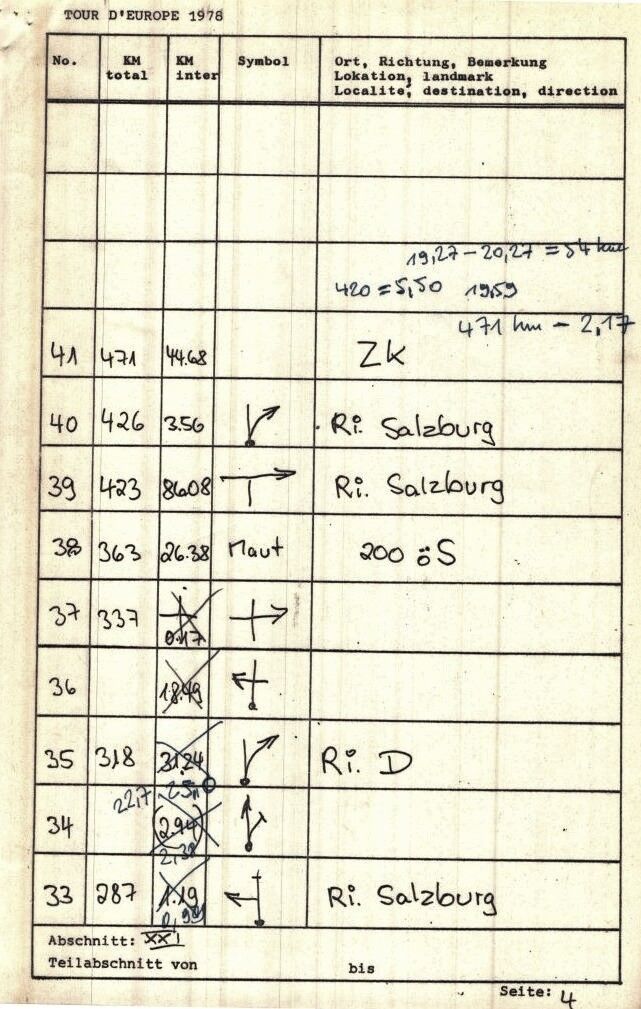 TOUR D'EUROPE 1978
No. KM total KM inter Symbol Ort, Richtung, Bemerkung
Lokation, landmark
Localite, destination, direction
19,27 - 20,27 = 54 km
420 = 5,50 19,59
471 km - 2,17
41 471 44.68 ZK
40 426 3.56 Ri. Salzburg
39 423 86.08 Ri. Salzburg
38 363 26.38 Maut 200 öS
37 337 0.17
36 18.49
35 318 31.24 Ri. D
22,7
34 (2.94)
2,38
33 287 1.19 Ri. Salzburg
Abschnitt: XXI
Teilabschnitt von bis
Seite: 4